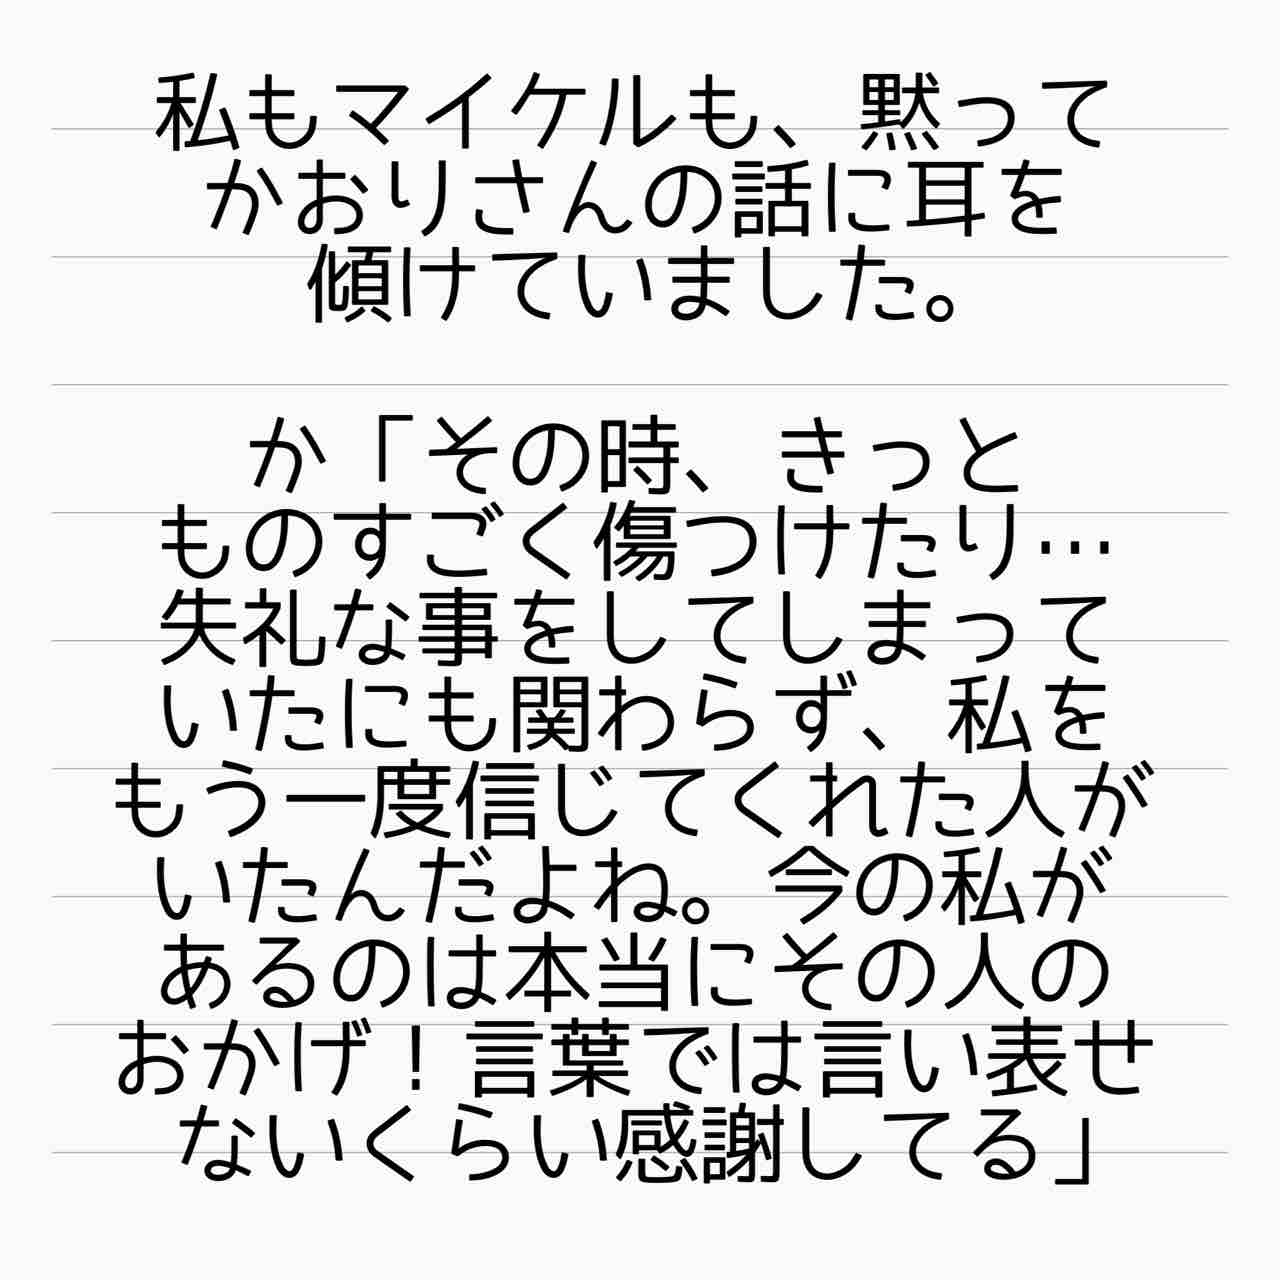 私もマイケルも、黙って
かおりさんの話に耳を
傾けていました。
か「その時、きっと
ものすごく傷つけたり…
失礼な事をしてしまって
いたにも関わらず、私を
もう一度信じてくれた人が
いたんだよね。今の私が
あるのは本当にその人の
おかげ！言葉では言い表せ
ないくらい感謝してる」